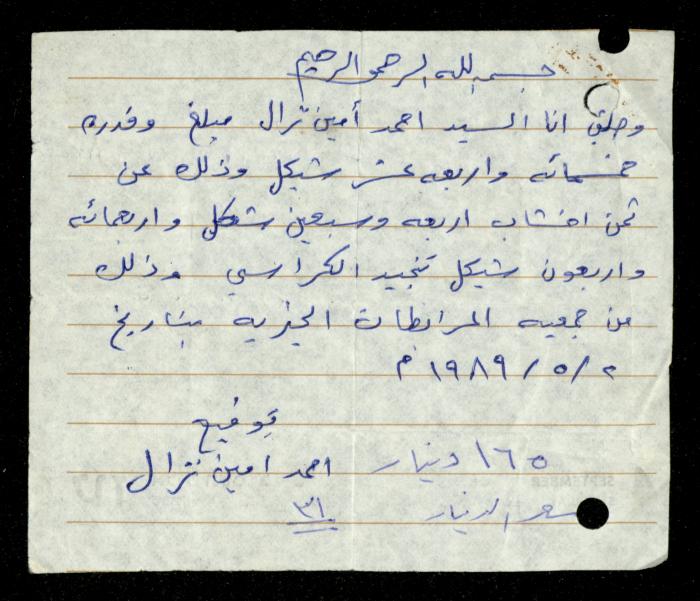 بسم الله الرحمن الرحيم
وصلني انا السيد احمد أمين نزال مبلغ وقدره
خمسمائه واربعه عشر شيكل وذلك عن
ثمن اخشاب اربعه وسبعين شيكل واربعمائه
واربعون شيكل تنجيد الكراسي وذلك
من جمعيه المرابطات الخيريه بتاريخ
٢ / ٥ / ١٩٨٩ م
توقيع
احمد امين نزال
١٦٥ دينار
سعر الدينار ٣١
SEPTEMBER